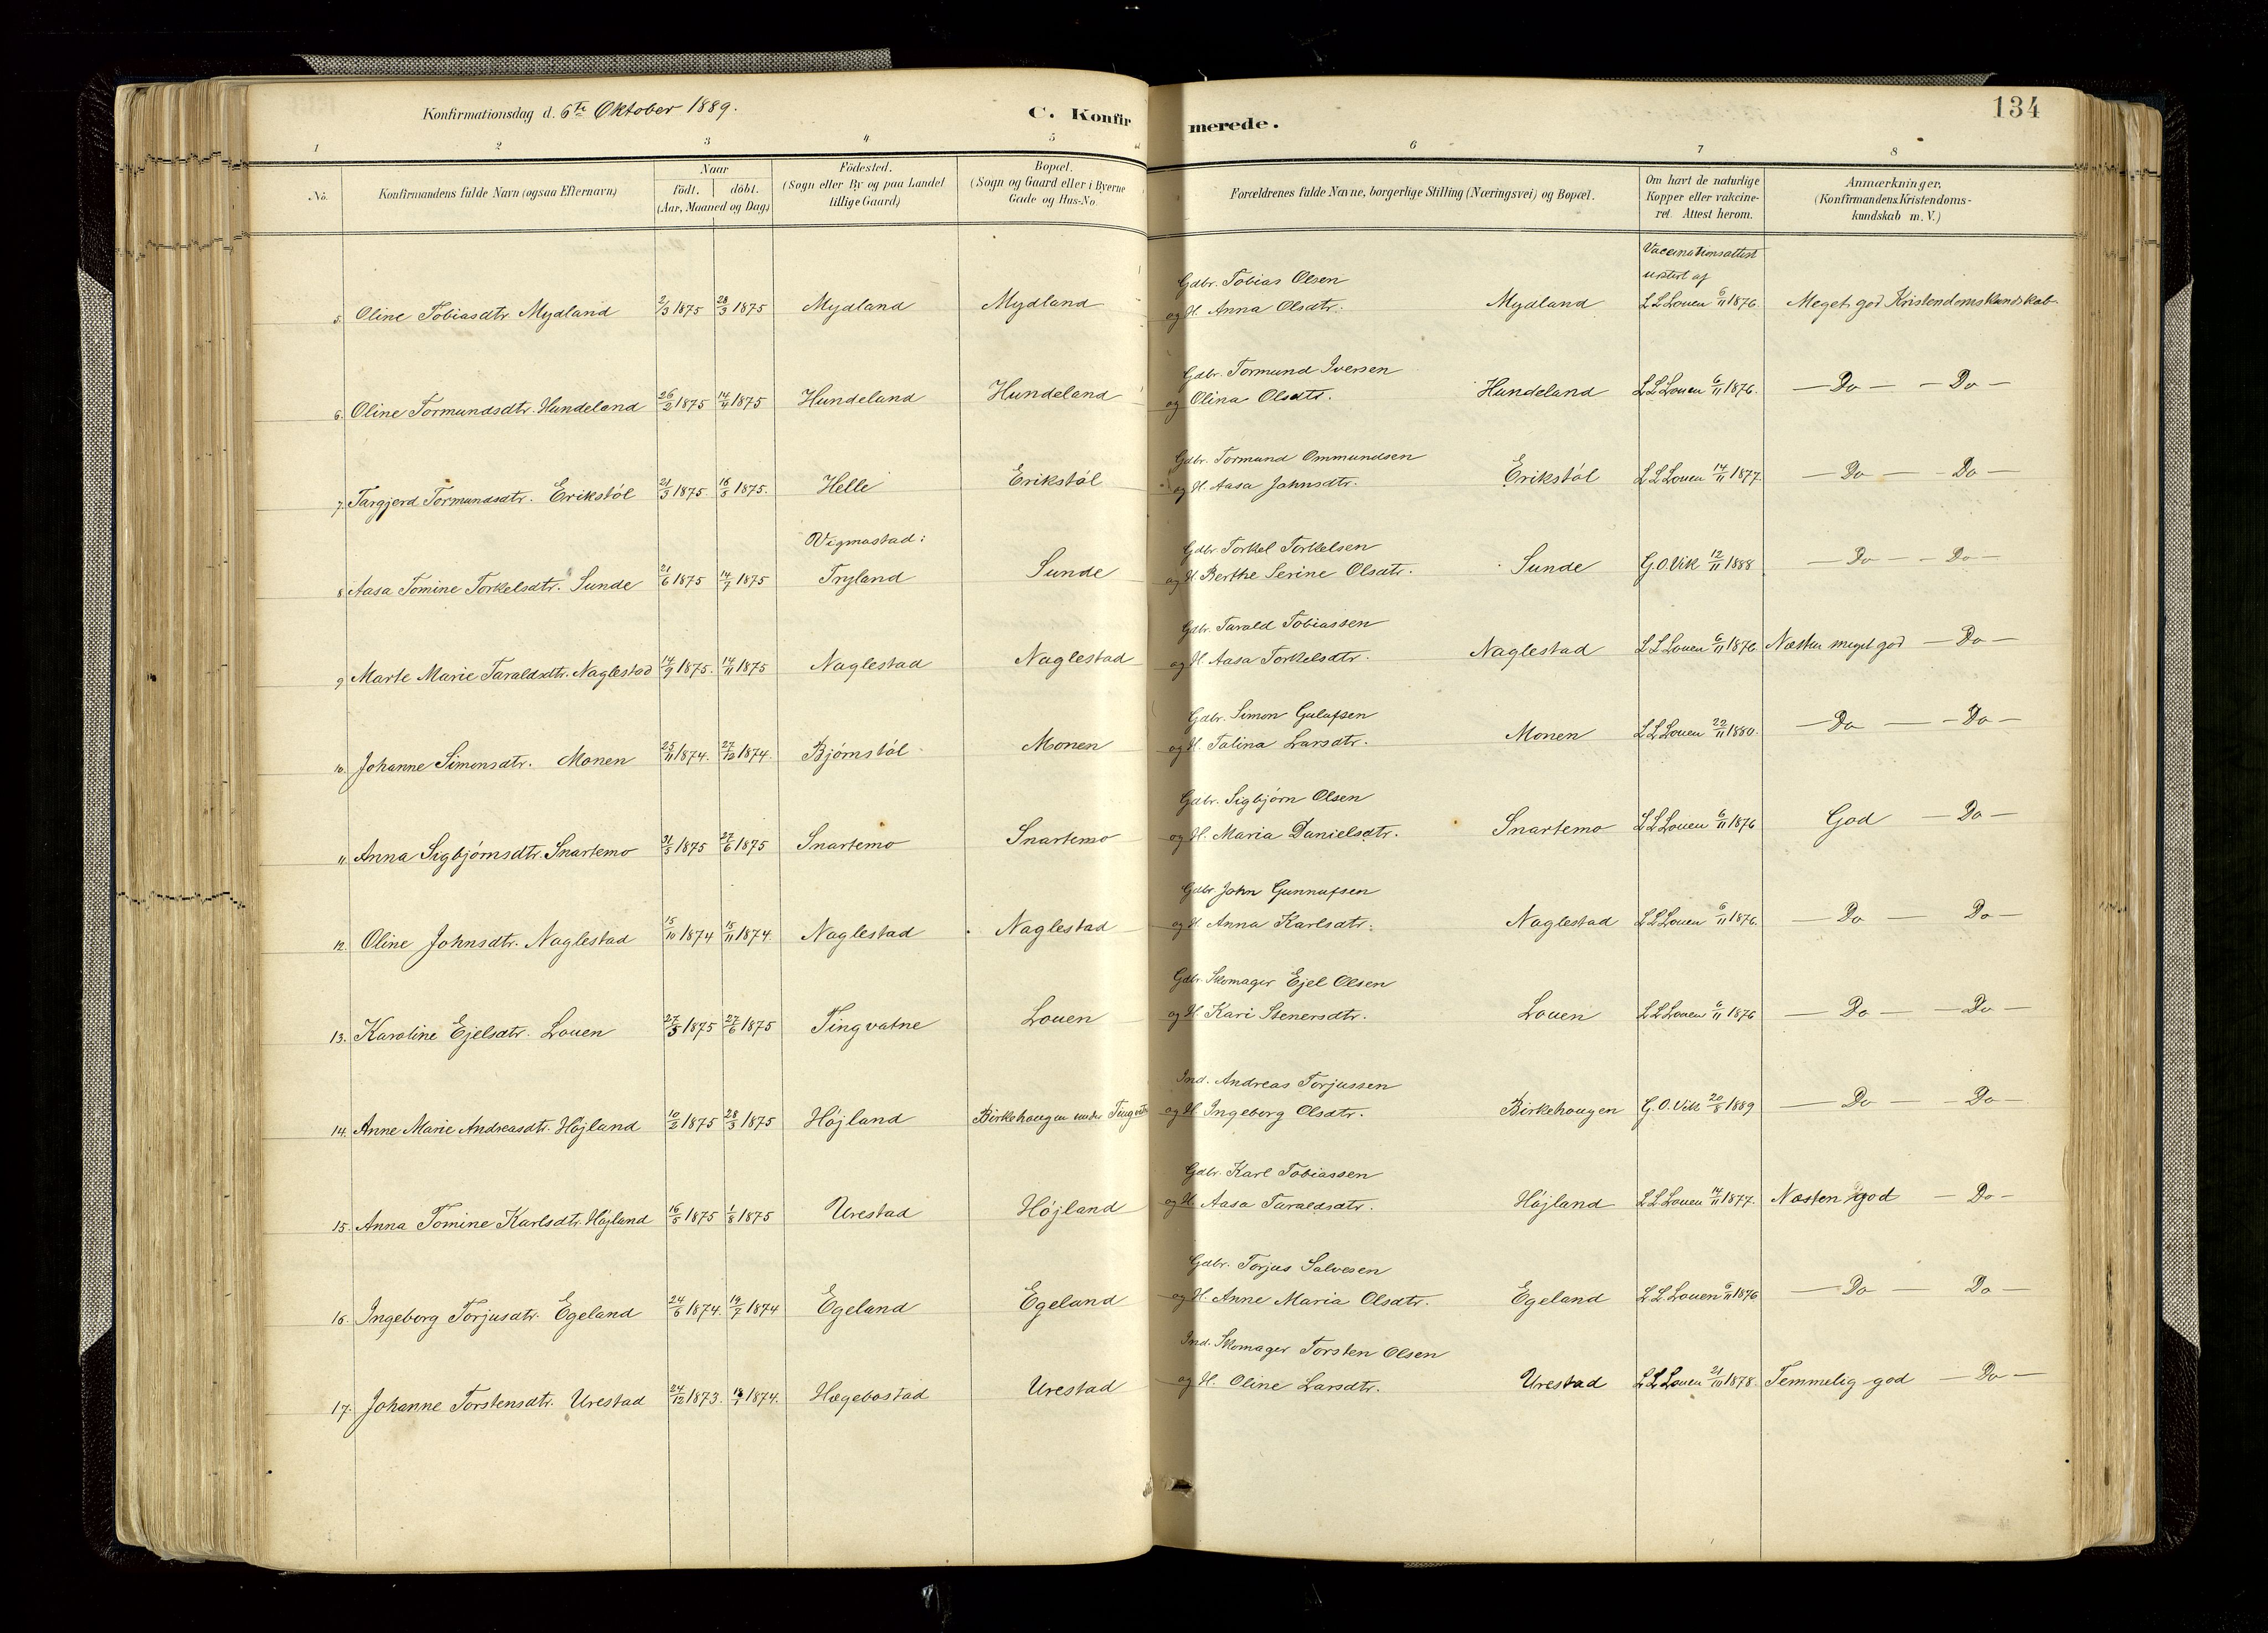 Konfirmationsdag d. 6te Oktober 1889.
C. Konfirmerede.
134
1 2 3 4 5 6 7 8
No. Konfirmandens fulde Navn (ogsaa Efternavn) Naar født. døbt. (Aar, Maaned og Dag) Fødested. (Sogn eller By og paa Landet tillige Gaard) Bopæl. (Sogn og Gaard eller i Byerne Gade og Hus-No. Forældrenes fulde Navne, borgerlige Stilling (Næringsvei) og Bopæl. Om havt de naturlige Kopper eller vakcineret. Attest herom. Anmærkninger. (Konfirmandens Kristendomskundskab m. V.)
Vaccinationsattest
Gdbr. Tobias Olsen
5. Oline Tobiasdtr. Mydland 2/3 1875 28/3 1875 Mydland Mydland og H. Anna Olsdtr. Mydland L L Louen 6/11 1876. Meget god Kristendomskundskab
Gdbr. Tormund Iversen
6. Oline Tormundsdtr. Hundeland 26/2 1875 14/4 1875 Hundeland Hundeland og Olina Olsdtr. Hundeland L L Louen 6/11 1876. — Do — — Do —
Gdbr. Tormund Ommundsen
7. Targjerd Tormundsdtr. Erikstøl 21/3 1875 16/5 1875. Helle Erikstøl og H. Aasa Johnsdtr. Erikstøl L L Louen 14/11 1877. — Do — — Do —
Vigmostad: Gdbr. Torkel Torkelsen
8. Aasa Tomine Torkelsdtr. Sunde 21/6 1875 14/7 1875 Tryland Sunde og H Berthe Serine Olsdtr. Sunde G. O. Vik 12/11 1888 — Do — — Do —
Gdbr. Tarald Tobiassen
9 Marte Marie Taraldsdtr. Naglestad 14/9 1875. 14/11 1875 Naglestad Naglestad og H. Aasa Torkelsdtr. Naglestad L L Louen 6/11 1876 Næsten meget god — Do —
Gdbr. Simon Gulufsen
10. Johanne Simonsdtr. Monen 25/11 1874. 27/12 1874. Bjørnstøl Monen og H. Talina Larsdtr. Monen L L Louen 22/11 1880. — Do — — Do —
Gdbr. Sigbjørn Olsen
11 Anna Sigbjørnsdtr. Snartemo 31/5 1875 27/6 1875 Snartemo Snartemo og H. Maria Danielsdtr. Snartemo L L Louen 6/11 1876 God — Do —
Gdbr. John Gunnufsen
12. Oline Johnsdtr. Naglestad 15/10 1874 15/11 1874. Naglestad Naglestad og H. Anna Karlsdtr. Naglestad L L Louen 6/11 1876. — Do — Do —
Gdbr. Skomager Ejel Olsen
13. Karoline Ejelsdtr. Louen 27/5 1875 27/6 1875 Tingvatne Louen og H Kari Stenersdtr. Louen L L Louen 6/11 1876 — Do — — Do —
Ind. Andreas Torjussen
14. Anne Marie Andreasdtr. Højland 10/2 1875 28/3 1875 Højland Birkehougen under og H Ingeborg Olsdtr. Birkehougen G. O. Vik 20/8 1889 — Do — — Do —
Gdbr. Karl Tobiassen
15. Anna Tomine Karlsdtr. Højland 16/5 1875 1/8 1875 Urestad Højland og H. Aasa Taraldsdtr. Højland L L Louen 14/11 1877. Næsten god — Do —
Gdbr. Torjus Salvesen
16. Ingeborg Torjusdtr. Egeland 24/6 1874. 19/7 1874 Egeland Egeland og H. Anne Maria Olsdtr. Egeland L L Louen 6/11 1876 — Do — Do —
Ind. Skomager Torsten Olsen
17. Johanne Torstensdtr. Urestad 24/12 1873. 1874. Hægebostad Urestad og H. Oline Larsdtr. Urestad L L Louen 21/10 1878. Temmelig god — Do —